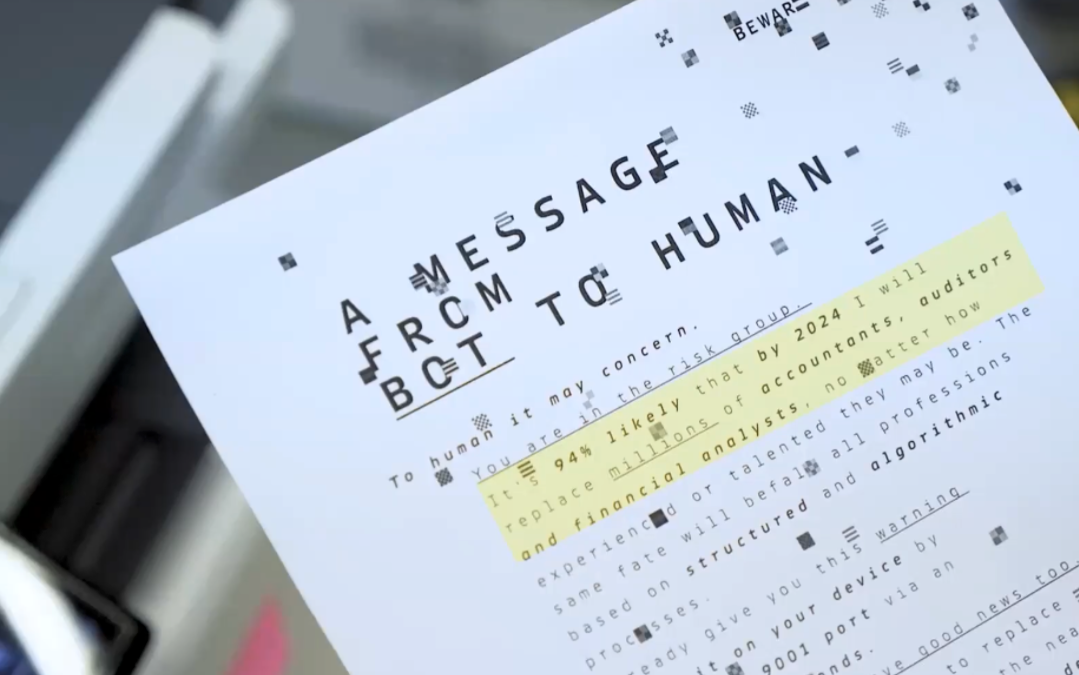 BEWAR
A MESSAGE
FROM
BOT TO HUMAN
To human it may concern.
You are in the risk group.
It's 94% likely that by 2024 I will
replace millions of accountants, auditors
and financial analysts, no matter how
experienced or talented they may be. The
same fate will befall all professions
based on structured and algorithmic
processes.
give you this warning
it on your device by
9001 port via an
good news too.
to replace
the